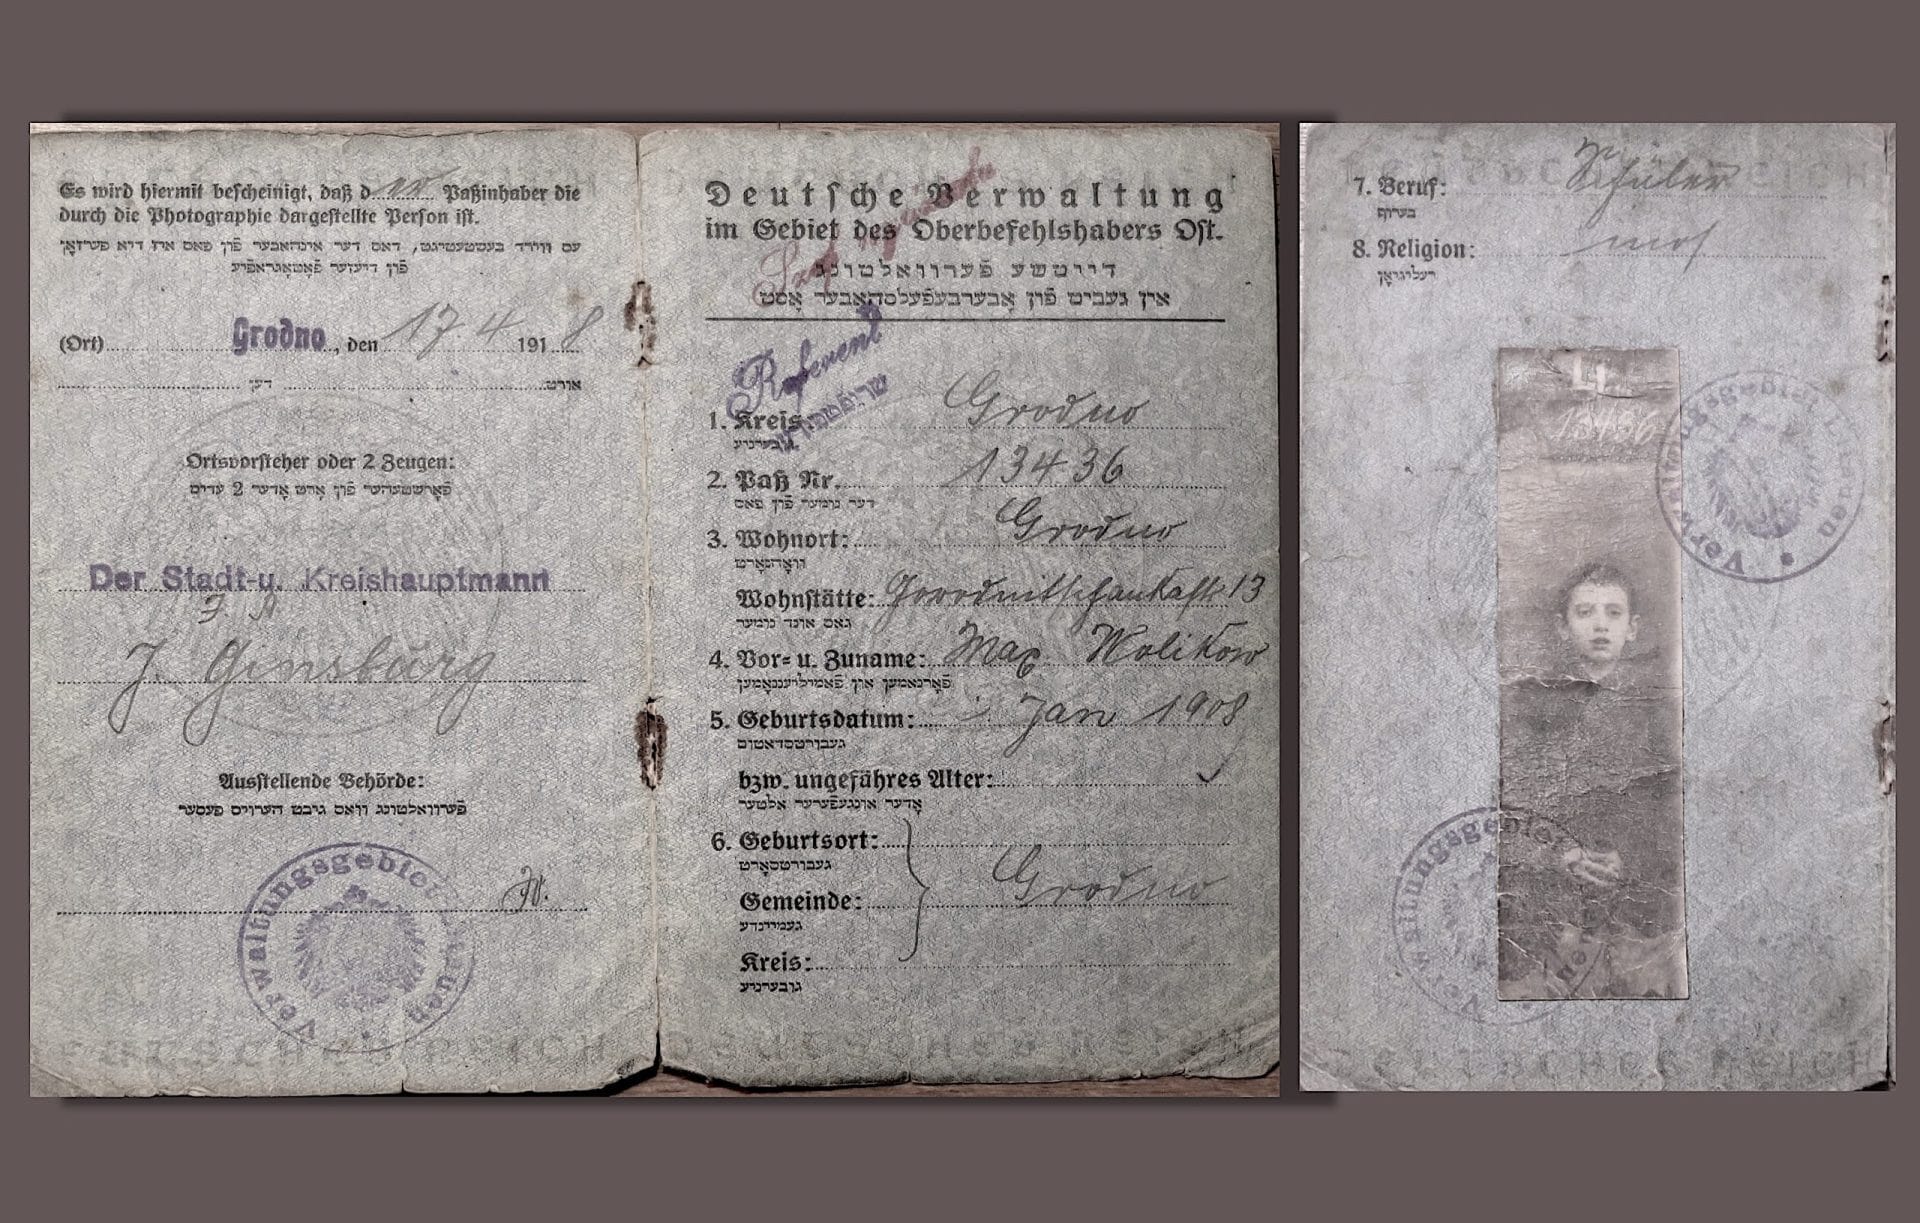 Es wird hiermit bescheinigt, daß d er Paßinhaber die
durch die Photographie dargestellte Person ist.
עס ווירד בעשטעטיגט, דאס דער אינהאבער פֿון פאס איז דיא פערזאָן
פֿון דיעזער פֿאָטאָגראפֿיע
(Ort) Grodno, den 17 4 1918
אורט דען
Ortsvorsteher oder 2 Zeugen:
פֿאָרשטעהער פֿון אָרט אָדער 2 עדים
Der Stadt-u. Kreishauptmann
J A
J. Ginsburg
Ausstellende Behörde:
פֿערוואלטונג וואָס גיבט הערויס פעסער
Verwaltungsgebiet Litauen
Deutsche Verwaltung
im Gebiet des Oberbefehlshabers Ost.
דייטשע פֿערוואלטונג
אין געביט פֿון אָבערבעפֿעלסהאָבער אָסט
Referent
1. Kreis: Grodno
גובערניע
2. Paß Nr. 13436
דער נומער פֿון פאס
3. Wohnort: Grodno
וואָהנאָרט
Wohnstätte: Gorodnitschankastr 13
גאס אונד נומער
4. Vor= u. Zuname: Max Wolikow
פֿאָרנאמען און פֿאמיליענאָמען
5. Geburtsdatum: Jan 1908
געבורטסדאטום
bzw. ungefähres Alter:
אָדער אונגעפֿערער אלטער
6. Geburtsort:
געבורטסאָרט
Gemeinde: Grodno
געמיינדע
Kreis:
גובערניע
DEUTSCHES REICH DEUTSCHES REICH
7. Beruf: Schüler
בערוף
8. Religion: mos
רעליגיאָן
13436
Verwaltungsgebiet Litauen
Verwaltungsgebiet
DEUTSCHES REICH